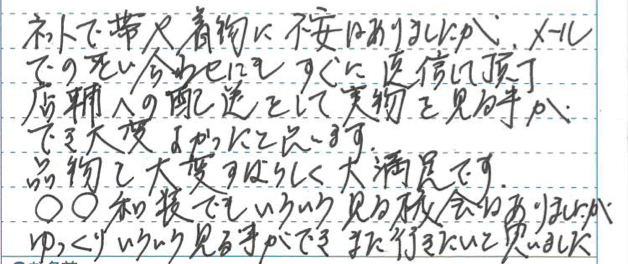 ネットで帯や着物に不安はありましたが、メール
での問い合わせにもすぐに返信して頂き
店舗への配送として実物を見る事が
でき大変よかったと思います。
品物も大変すばらしく大満足です。
○○和装でもいろいろ見る機会はありましたが
ゆっくりいろいろ見る事ができまた行きたいと思いました